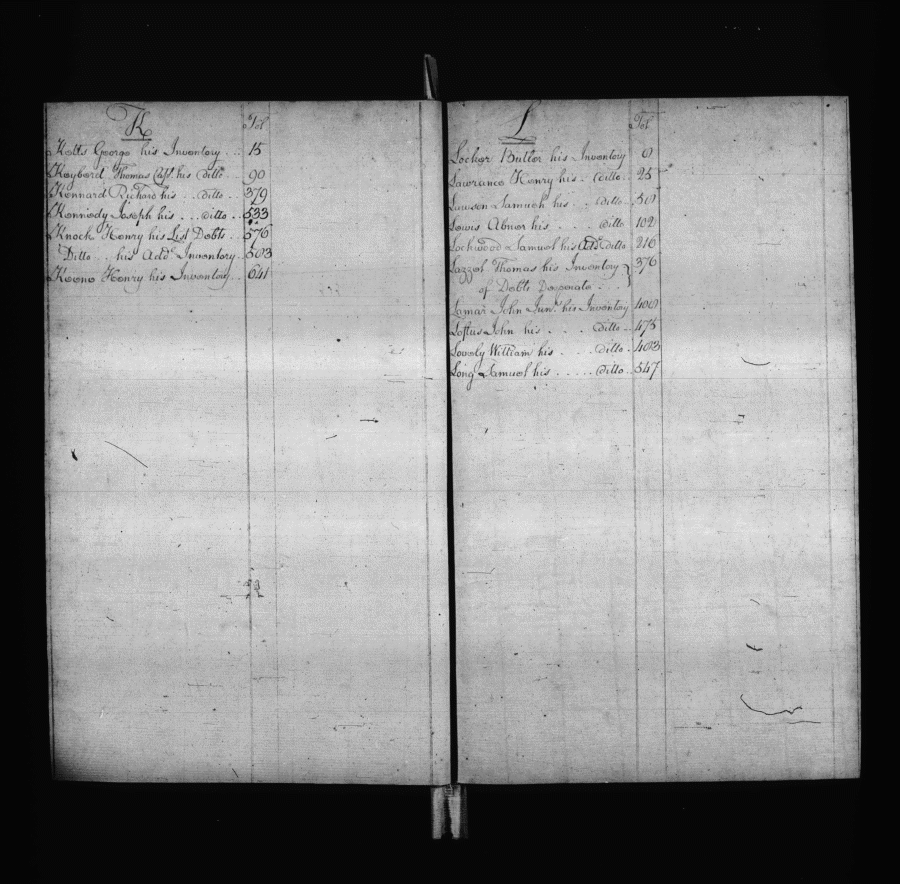 K
Fol
Ketts George his Inventory . . 15
Keybard Thomas Capt. his ditto . . 90
Kennard Richard his . . ditto . . 379
Kennedy Joseph his . . . ditto . . 533
Knock Henry his List Debts . . 576
Ditto . . his Add.l Inventory . . 583
Keene Henry his Inventory . . 641
L
Fol
Locker Butler his Inventory 9
Lawrance Henry his . . ditto . . 25
Lawson Samuel his . . ditto . . 59
Lewis Abner his . . . . ditto 102
Lockwood Samuel his Add.l ditto 216
Lazzel Thomas his Inventory } 376
of Debts Desperate . . .
Lamar John Jun.r his Inventory 409
Loftus John his . . . . ditto . . 475
Lovely William his . . . . ditto . . 483
Long Samuel his . . . . . ditto . . 547